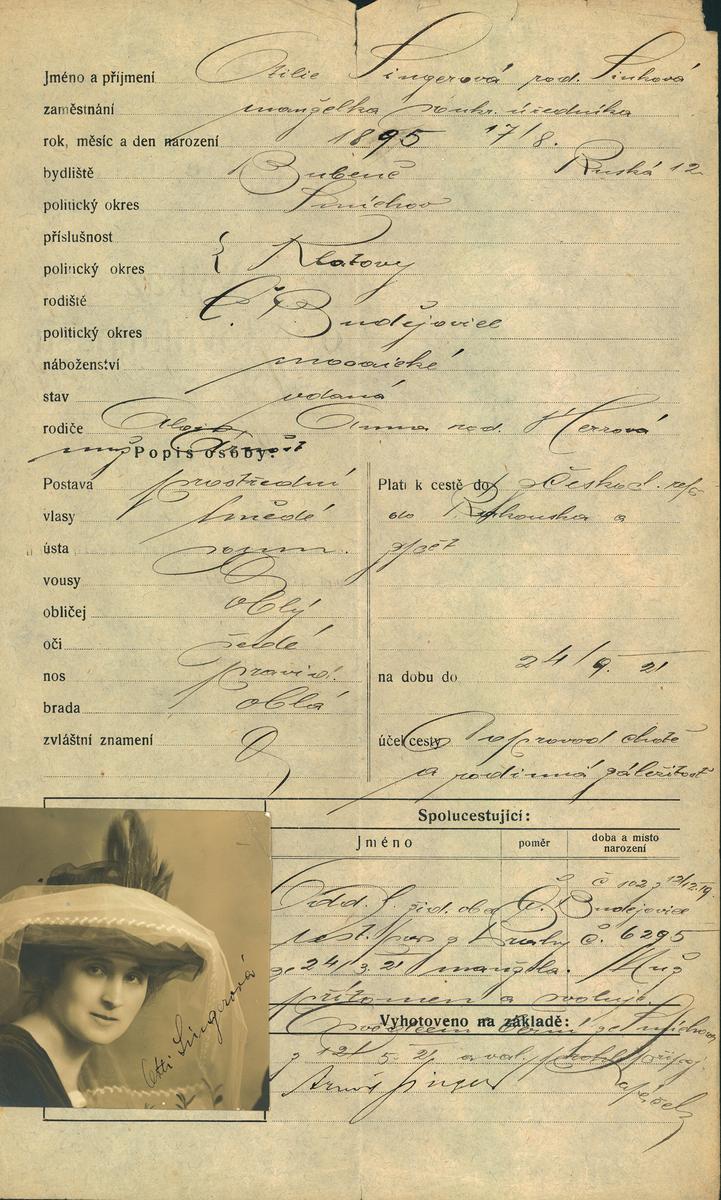 Jméno a přijmení Otilie Singerová roz. Sinková
zaměstnání manželka soukr. úředníka
rok, měsíc a den narození 1895 17/8.
bydliště Bubeneč Ruská 12
politický okres Smíchov
příslušnost
politický okres { Klatovy
rodiště Č. Budějovice
politický okres
náboženství mosaické
stav vdaná
rodiče Anna roz. Herrová
muž Arnošt
Popis osoby:
Postava prostřední
vlasy hnědé
ústa soum.
vousy
obličej oblý
oči šedé
nos pravid.
brada oblá
zvláštní znamení
Platí k cestě do Českosl. rep.
do Rakouska a
zpět
na dobu do 24/9. 21
účel cesty Doprovod chotě
a rodinná záležitost
Spolucestující:
Jméno poměr doba a místo narození
č 102 z 12/12.19.
Odd. l. žid. obce Č. Budějovice
cest. pas z Prahy č. 6295
ze 24/3. 21 manžela. Muž
přítomen a svoluje.
Vyhotoveno na základě:
ze Smíchova
z 12/5. 21 a
Arnošt Singer
Otti Singerová